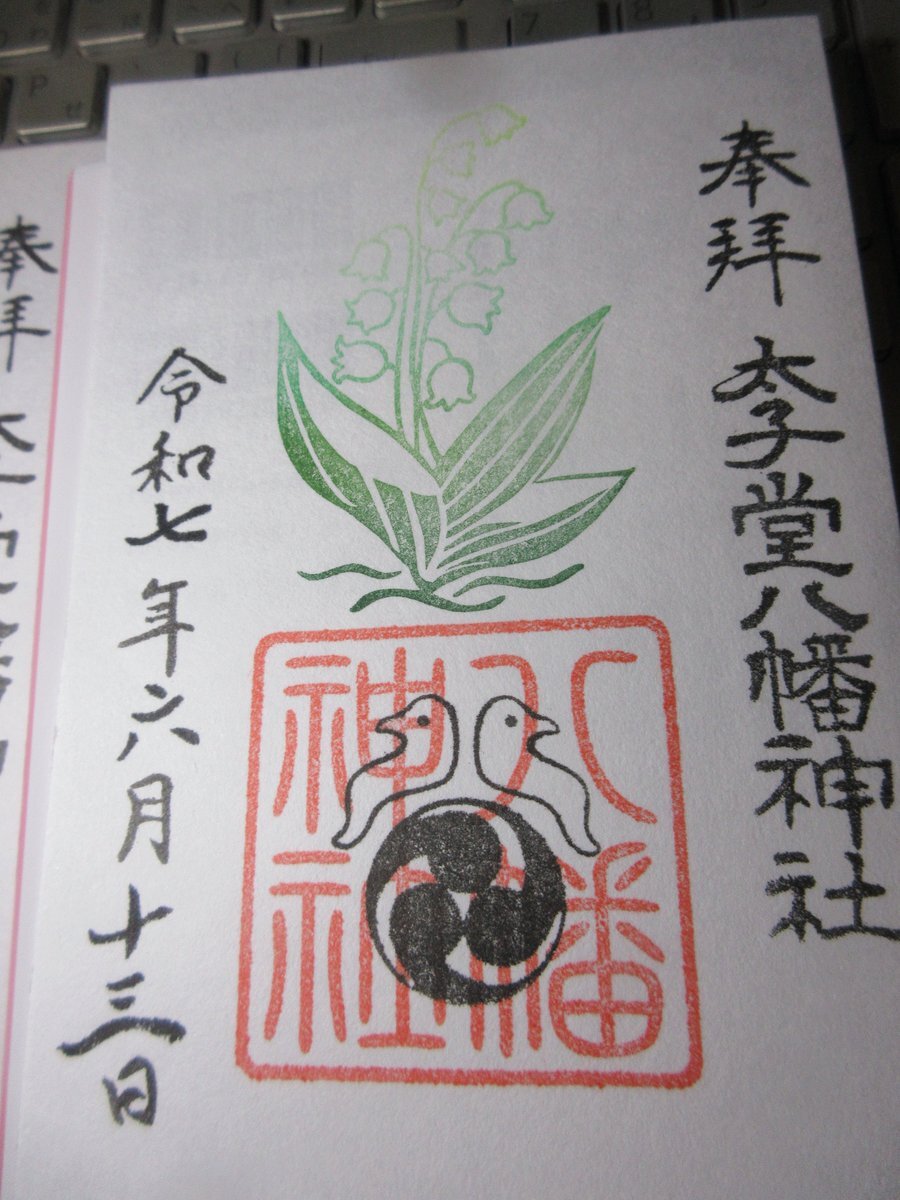 奉拝 太子堂八幡神社
八幡
神社
令和七年六月十三日
奉拝
P
7
8